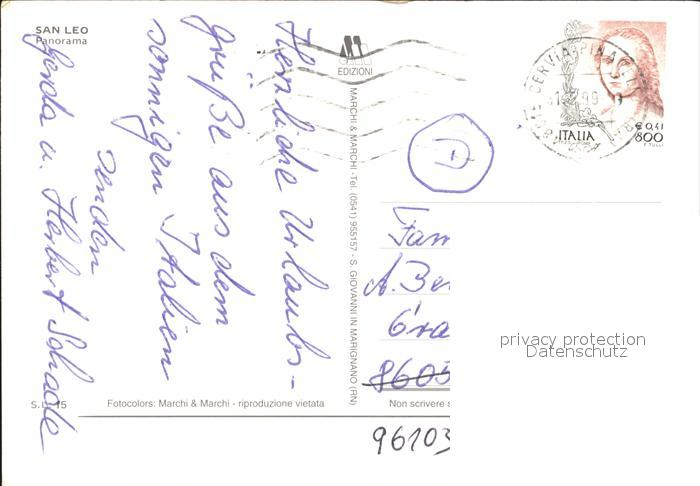 SAN LEO
Panorama
EDIZIONI
MARCHI & MARCHI - Tel. (0541) 955157 - S. GIOVANNI IN MARIGNANO (RN)
Herzliche Urlaubs-
grüße aus dem
sonnigen Italien
senden
Gerda u. Herbert Schade
S.L. 15
Fotocolors: Marchi & Marchi - riproduzione vietata
Non scrivere s
CERVIA PINA
99
ITALIA
€ 0,41
800
D
Fam
A. Be
Gra
8605
96103
privacy protection
Datenschutz